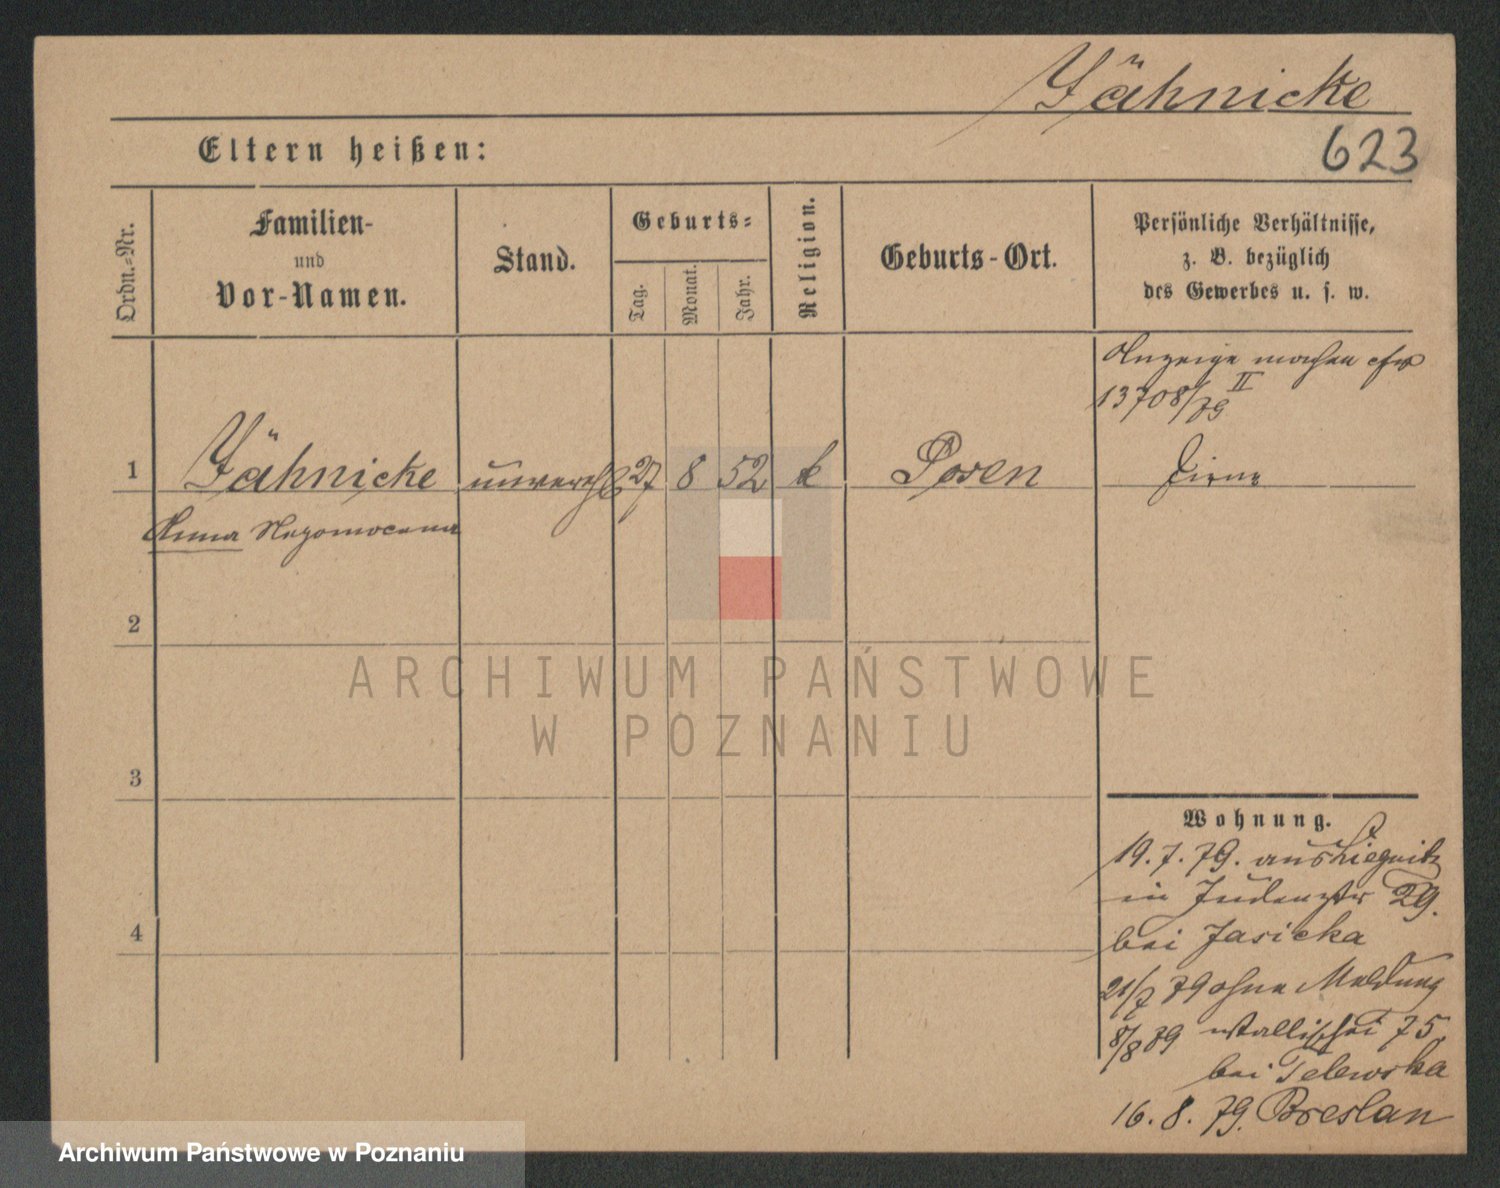 Jähnicke
623
Eltern heißen:
Ordn.-Nr.
Familien-
und
Vor-Namen.
Stand.
Geburts-
Tag.
Monat.
Jahr.
Religion.
Geburts-Ort.
Persönliche Verhältnisse,
z. B. bezüglich
des Gewerbes u. s. w.
Anzeige machen cfr
13708/79 II
1 Jähnicke unverehl 27 8 52 k Posen Dirne
Anna Nepomocena
2
3
4
Wohnung.
19. 7. 79. aus Liegnitz
in Judenstr 29.
bei Jasicka
21/7 79 ohne Meldung
8/8 89 Wallischei 75
bei Telewska
16. 8. 79. Breslau
ARCHIWUM PAŃSTWOWE
W POZNANIU
Archiwum Państwowe w Poznaniu